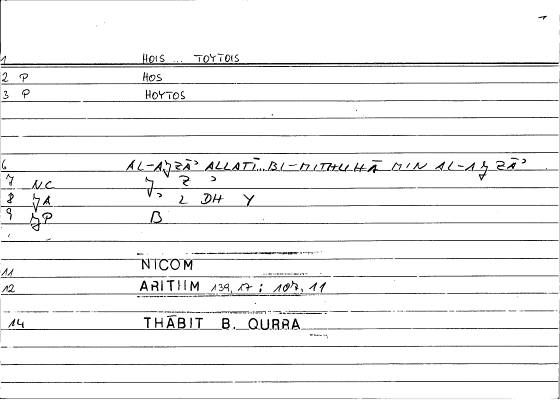 1 HOIS ... TOYTOIS
2 P HOS
3 P HOYTOS
6 AL-AJZĀʾ ALLATĪ...BI-MITHLIHĀ MIN AL-AJZĀʾ
7 NC J Z ʾ
8 JA ʾ L DH Y
9 JP B
11 NICOM
12 ARITHM 139,17 ; 107,11
14 THĀBIT B. QURRA